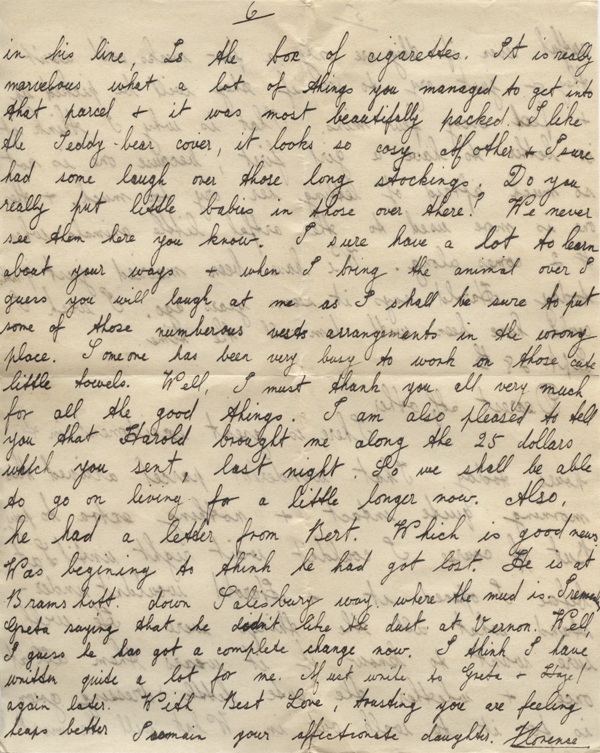 6
in his line, Is the box of cigarettes. It is really
marvelous what a lot of things you managed to get into
that parcel & it was most beautifully packed. I like
the Teddy-bear cover, it looks so cosy. Mother & I sure
had some laugh over those long stockings. Do you
really put little babies in those over there? We never
see them here you know. I sure have a lot to learn
about your ways & when I bring the animal over I
guess you will laugh at me as I shall be sure to put
some of those numberous vests arrangements in the wrong
place. Someone has been very busy to work on those cute
little towels. Well, I must thank you all very much
for all the good things. I am also pleased to tell
you that Harold brought me along the 25 dollars
which you sent, last night. So we shall be able
to go on living for a little longer now. Also,
he had a letter from Bert. Which is good news
Was begining to think he had got lost. He is at
Bramshott. down Salesbury way, where the mud is.
Greta saying that he didn't like the dust at Vernon. Well,
I guess he has got a complete change now. I think I have
written quite a lot for me. Must write to Greta &
again later. With Best Love, trusting you are feeling
heaps better I remain your affectionate daughter. Florence